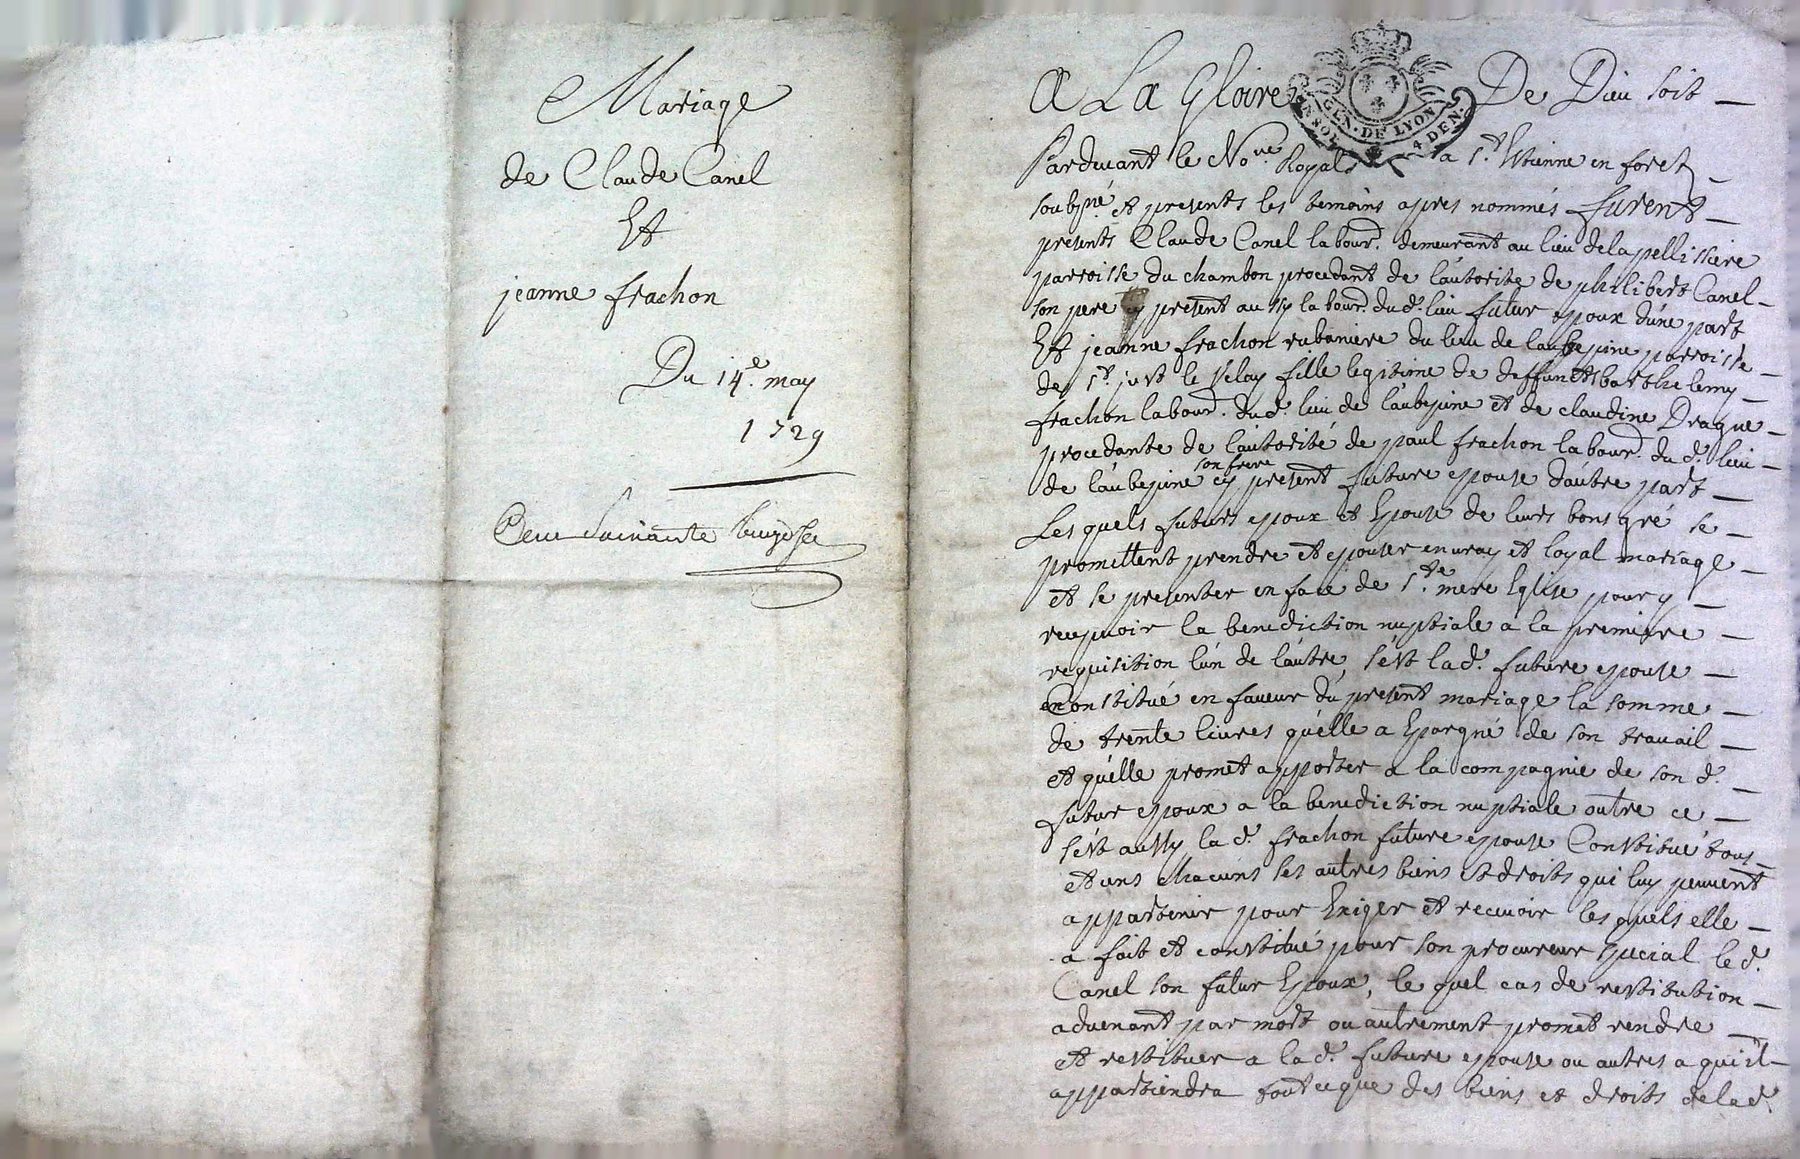 Mariage
de Claude Canel
Et
jeanne frachon
Du 14e. may
1729
A La Gloire De Dieu soit
GEN. DE LYON
4 DEN.
Pardevant le Nore. Royal a St. Etienne en forest
soubzné. et presents les temoins apres nommés furent
presents Claude Canel labourr. demeurant au lieu de la pellissiere
parroisse du chambon procedant de l'autorité de philibert Canel
son pere cy present aussy labourr. dud. lieu futur epoux d'une part
Et jeanne frachon rubaniere du lieu de laubepine parroisse
de St. just le velay fille legitime de deffuncts barthelemy
frachon labourr. dud. lieu de l'aubepine et de claudine Drague
procedante de l'autorité de paul frachon labourr. du d. lieu
de l'aubepine son frere cy present future epouse d'autre part
Les quels futurs epoux et Epouse de leurs bons gré se
promettent prendre et epouser en vray et loyal mariage
et se presenter en face de Ste. mere Eglise pour y
recepvoir la benediction nuptiale a la premiere
requisition l'un de l'autre, s'est lad. future epouse
Constitué en faveur du present mariage la somme
de trente livres qu'elle a Epargné de son travail
et qu'elle promet apporter a la compagnie de son d.
futur epoux a la benediction nuptiale outre ce
s'est aussy la d. frachon future epouse Constitué tous
et uns chacuns ses autres biens et droits qui luy peuvent
appartenir pour Exiger et recevoir les quels elle
a fait et constitué pour son procureur special le d.
Canel son futur Epoux, le quel cas de restitution
advenant par mort ou autrement promet rendre
et restituer a lad. future epouse ou autres a qui il
appartiendra tout ce que des biens et droits de lad.